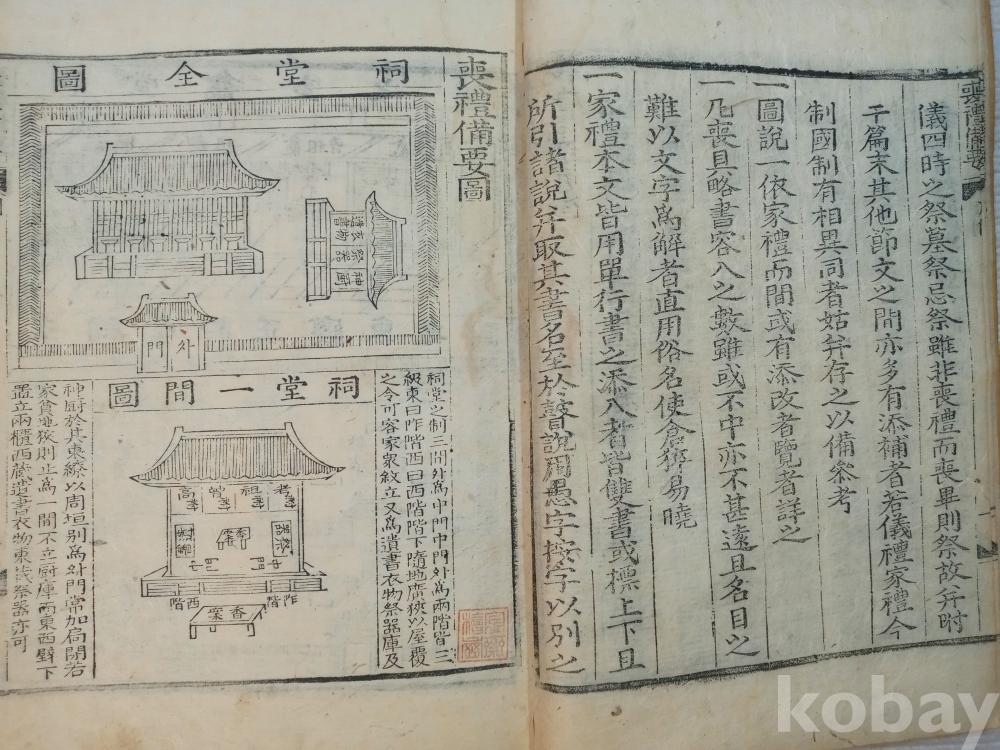 喪禮備要
儀四時之祭墓祭忌祭雖非喪禮而喪畢則祭故幷附
于篇末其他節文之間亦多有添補者若儀禮家禮今
制國制有相異同者姑幷存之以備參考
一圖說一依家禮而間或有添改者覽者詳之
一凡喪具略書容入之數雖或不中亦不甚遠且名目之
難以文字爲解者直用俗名使倉猝易曉
一家禮本文皆用單行書之添入者皆雙書或標上下且
所引諸說幷取其書名至於瞽說用愚字按字以別之
喪禮備要圖
祠堂全圖
遺書衣物祭器神廚
外門
祠堂之制三間外爲中門中門外爲兩階皆三
級東曰阼階西曰西階階下隨地廣狹以屋覆
之令可容家衆敘立又爲遺書衣物祭器庫及
祠堂一間圖
考
祖
曾
高
中門
阼階
西階
香案
神廚於其東繚以周垣別爲外門常加扃閉若
家貧地狹則止爲一間不立廚庫而東西壁下
置立兩櫃西藏遺書衣物東藏祭器亦可
kobay